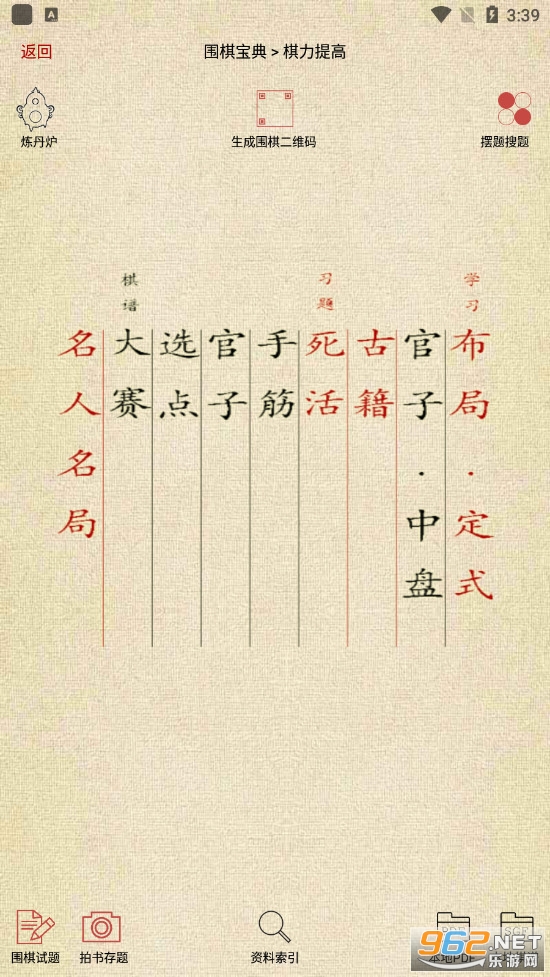 3:39
返回
围棋宝典 > 棋力提高
炼丹炉
生成围棋二维码
摆题搜题
学习
布局·定式
官子·中盘
古籍
习题
死活
手筋
官子
选点
棋谱
大赛
名人名局
围棋试题
拍书存题
资料索引
PDF
本地PDF
SGF
962.NET
乐游网